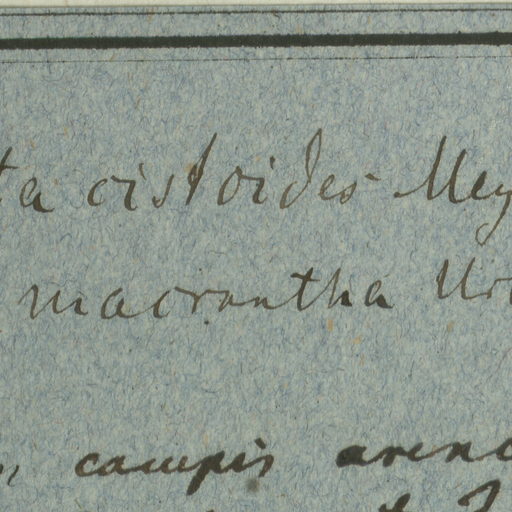 ta cistoides Mey
macrantha Ur
campis areno